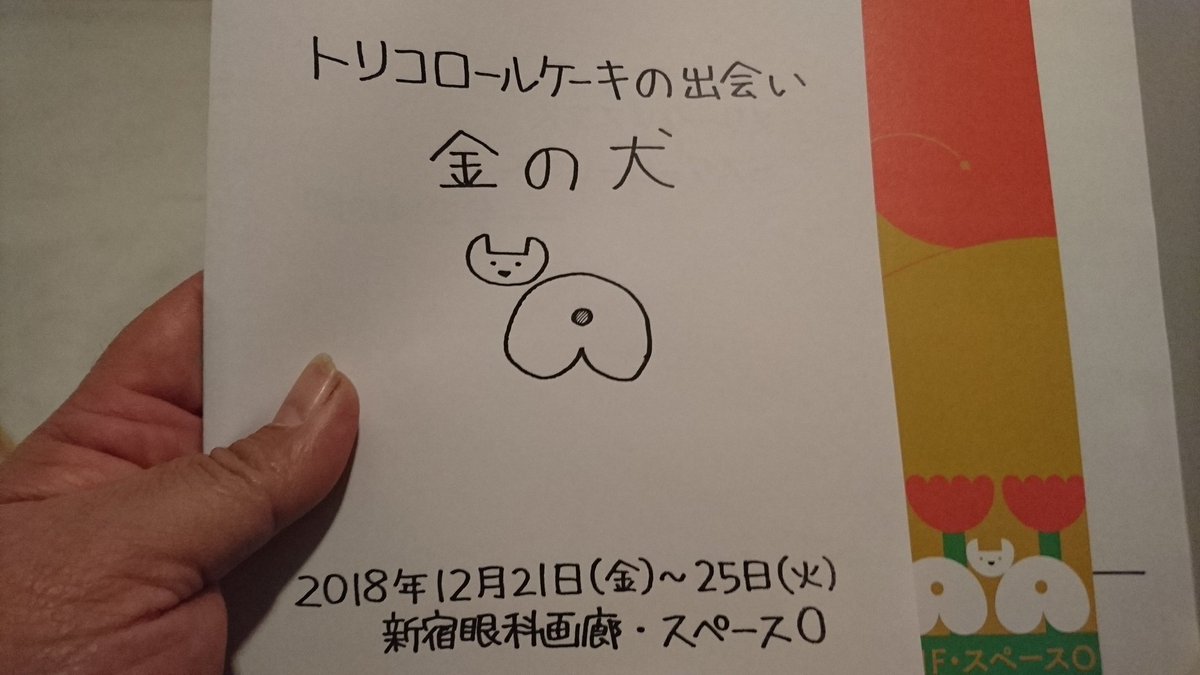 トリコロールケーキの出会い
金の犬
2018年12月21日(金)～25日(火)
新宿眼科画廊・スペースO
F・スペースO